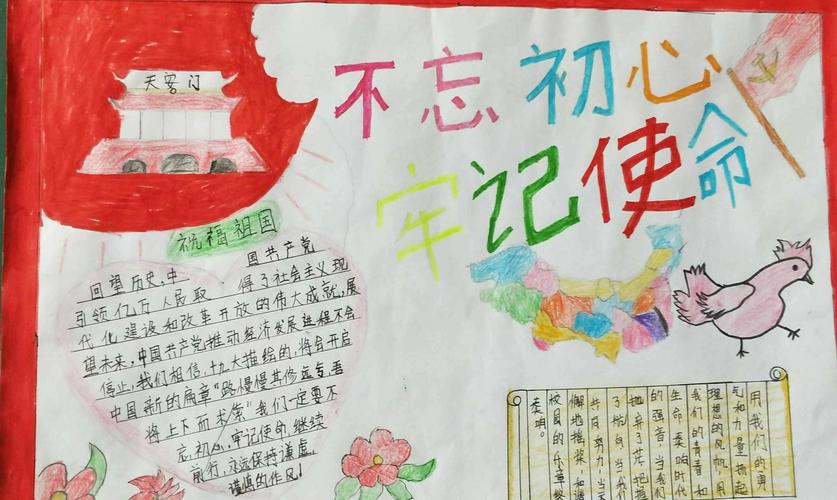 天客门
不忘初心
牢记使命
祝福祖国
回望历史,中 国共产党
引领亿万人民取 得了社会主义现
代化建设和改革开放的伟大成就,展
望未来,中国共产党推动经济发展进程不会
停止,我们相信,十九大描绘的,将开启
中国新的扁章"路慢慢其修远兮,吾
将上下而求索"我们一定要不
忘初心,牢记使命,继续
前行,永远保持谦虚、
谨慎的作风!
用我们的勇
气和力量起
理想的风帆,用
我们的青春和
生命奏响时
的强音,当我们
抛弃了茫把握
了航向,当我
共同努力,当不
懈地摇桨,和谐
校园的乐章终
奏响。